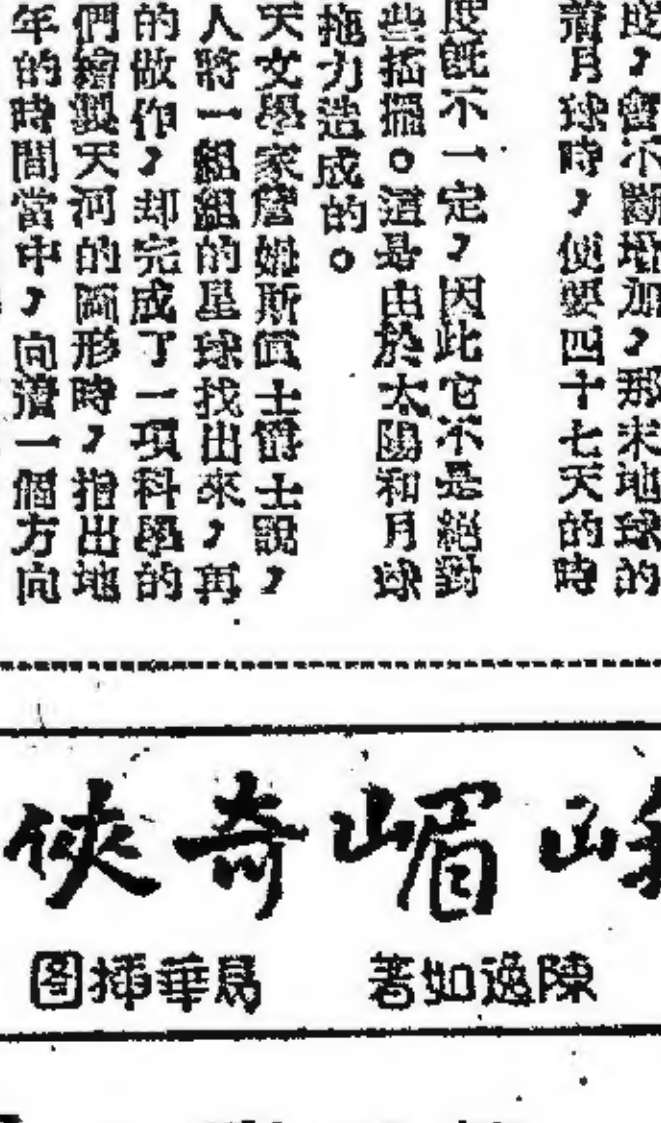 度，會不斷增加，那末地球的
着月球時，便要四十七天的時
度既不一定，因此它不是絕對
些搖擺。這是由於太陽和月球
拖力造成的。
天文學家詹姆斯儐士爵士說，
人將一組組的星球找出來，再
的做作，却完成了一項科學的
們繪製天河的圖形時，指出地
年的時間當中，向着一個方向
峨嵋奇俠
陳逸如著
易華插圖